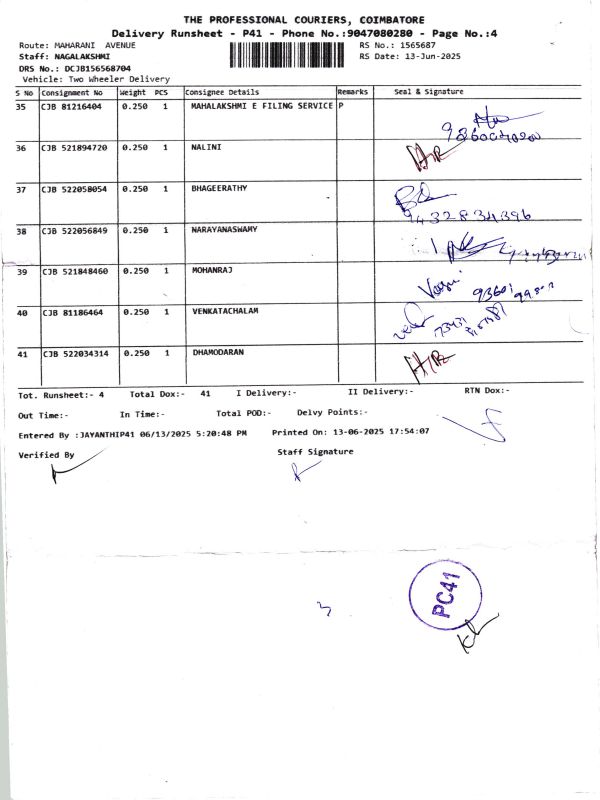 THE PROFESSIONAL COURIERS, COIMBATORE
Delivery Runsheet - P41 - Phone No.:9047080280 - Page No.:4
Route: MAHARANI AVENUE RS No.: 1565687
Staff: NAGALAKSHMI RS Date: 13-Jun-2025
DRS No.: DCJB156568704
Vehicle: Two Wheeler Delivery
S No Consignment No Weight PCS Consignee Details Remarks Seal & Signature
35 CJB 81216404 0.250 1 MAHALAKSHMI E FILING SERVICE P
36 CJB 521894720 0.250 1 NALINI
37 CJB 522058054 0.250 1 BHAGEERATHY
9432834396
38 CJB 522056849 0.250 1 NARAYANASWAMY
39 CJB 521848460 0.250 1 MOHANRAJ
40 CJB 81186464 0.250 1 VENKATACHALAM
41 CJB 522034314 0.250 1 DHAMODARAN
Tot. Runsheet:- 4 Total Dox:- 41 I Delivery:- II Delivery:- RTN Dox:-
Out Time:- In Time:- Total POD:- Delvy Points:-
Entered By :JAYANTHIP41 06/13/2025 5:20:48 PM Printed On: 13-06-2025 17:54:07
Verified By Staff Signature
PC41